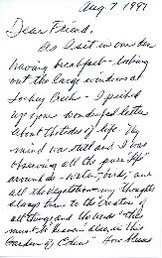 Aug. 7 1997
Dear Friend,
As I sit in our den
having breakfast - looking
out the large windows at
Creek - I picked
up your wonderful letter
about the tides of life. My
mind was still and I was
observing all the pure "life"
around us - water, birds, and
all the vegetation - my thoughts
always turn to the creation of
all things and the words "this
must be heaven" also, in this
Garden of Eden"